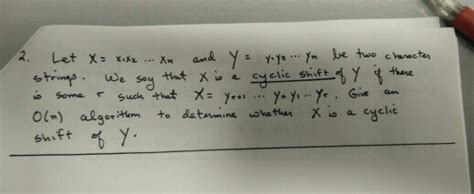 2. Let X = x₁x₂ ... xₙ and Y = y₁y₂ ... yₙ be two character
strings. We say that X is a cyclic shift of Y if there
is some r such that X = yᵣ₊₁ ... yₙ y₁ ... yᵣ. Give an
O(n) algorithm to determine whether X is a cyclic
shift of Y.